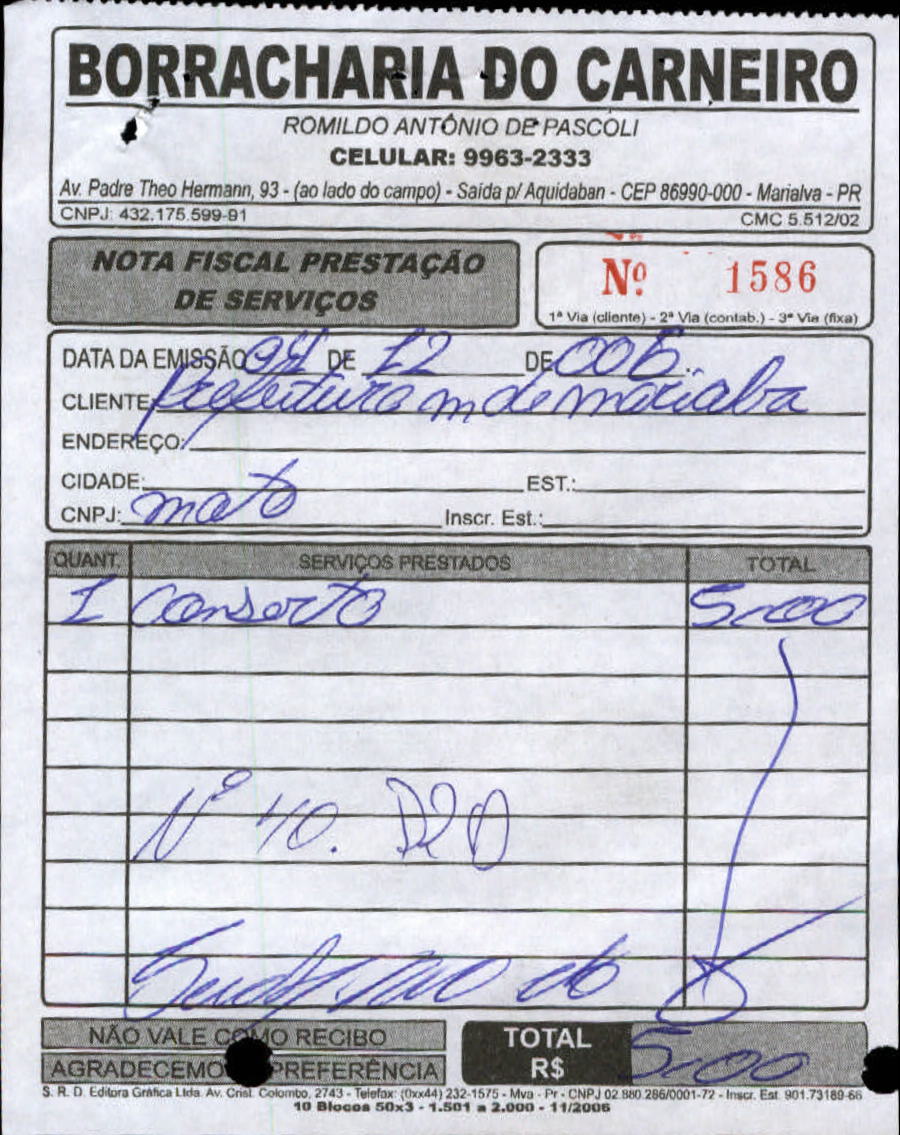 BORRACHARIA DO CARNEIRO
ROMILDO ANTÔNIO DE PASCOLI
CELULAR: 9963-2333
Av. Padre Theo Hermann, 93 - (ao lado do campo) - Saída p/ Aquidaban - CEP 86990-000 - Marialva - PR
CNPJ: 432.175.599-91 CMC 5.512/02
NOTA FISCAL PRESTAÇÃO
DE SERVIÇOS
Nº 1586
1ª Via (cliente) - 2ª Via (contab.) - 3ª Via (fixa)
DATA DA EMISSÃO DE 12 DE 006
CLIENTE Prefeitura m de marialva
ENDEREÇO:
CIDADE: EST.:
CNPJ: moto Inscr. Est.:
QUANT. SERVIÇOS PRESTADOS TOTAL
1 Conserto 5,00
Nº 40. D20
NÃO VALE COMO RECIBO
AGRADECEMO PREFERÊNCIA
TOTAL
R$ 5,00
S. R. D. Editora Gráfica Ltda. Av. Crist. Colombo, 2743 - Telefax: (0xx44) 232-1575 - Mva - Pr - CNPJ 02.880.286/0001-72 - Inscr. Est. 901.73189-66
10 Blocos 50x3 - 1.501 a 2.000 - 11/2006